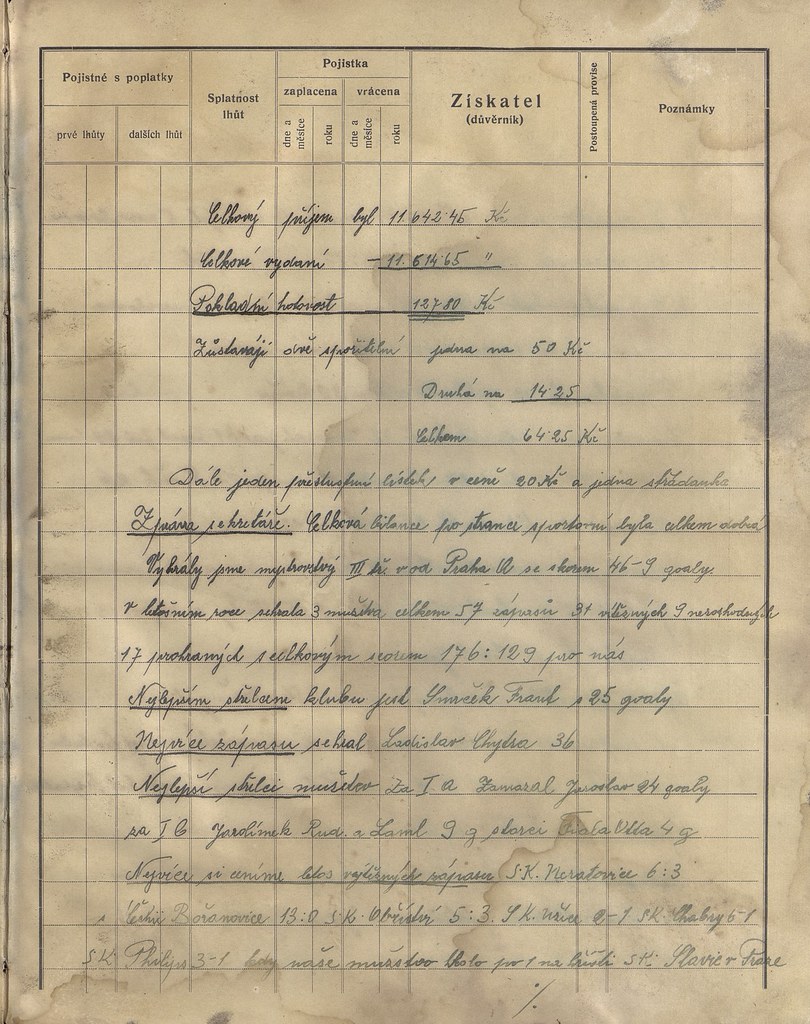 Pojistné s poplatky
prvé lhůty
dalších lhůt
Splatnost
lhůt
Pojistka
zaplacena
vrácena
dne a
měsíce
roku
dne a
měsíce
roku
Získatel
(důvěrník)
Postoupená provise
Poznámky
Celkový příjem byl 11.642·45 Kč
Celkové vydaní – 11.514·65 "
Pokladní hotovost 127·80 Kč
Zůstavají dvě spořitelní jedna na 50 Kč
Druhá na 14·25
Celkem 64·25 Kč
Dále jeden přestupní lístek v ceně 20 Kč a jedna
Zpráva sekretáře. Celková bilance po strance sportovní byla celkem dobrá
Vyhrály jsme mystrovstvý III tř v od Praha A se skorem 46-9 goaly.
v letošním roce sehrala 3 mužstva celkem 57 zápasů 31 vítězných 9 nerozhodných
17 prohraných s celkovým scorem 176:129 pro nás
Nejlepším střelcem klubu jest Smrček Frant s 25 goaly
Nejvíce zápasu sehral Ladislav Chytra 36
Nejlepší střelci mužstev za I. A Zamazal Jaroslav 24 goaly
za I B Rud. a 9 g starci Fiala 4 g
Nejvíce si ceníme letos vytězných zápasu S.K. Neratovice 6:3
Bořanovice 13:0 S.K. Obříství 5:3. S.K. 2-1 S.K. Chabry 6-1
S.K. Philips 3-1 kdy naše mužstvo po 1 na hřišti S.K. Slavie v Praze
·/.